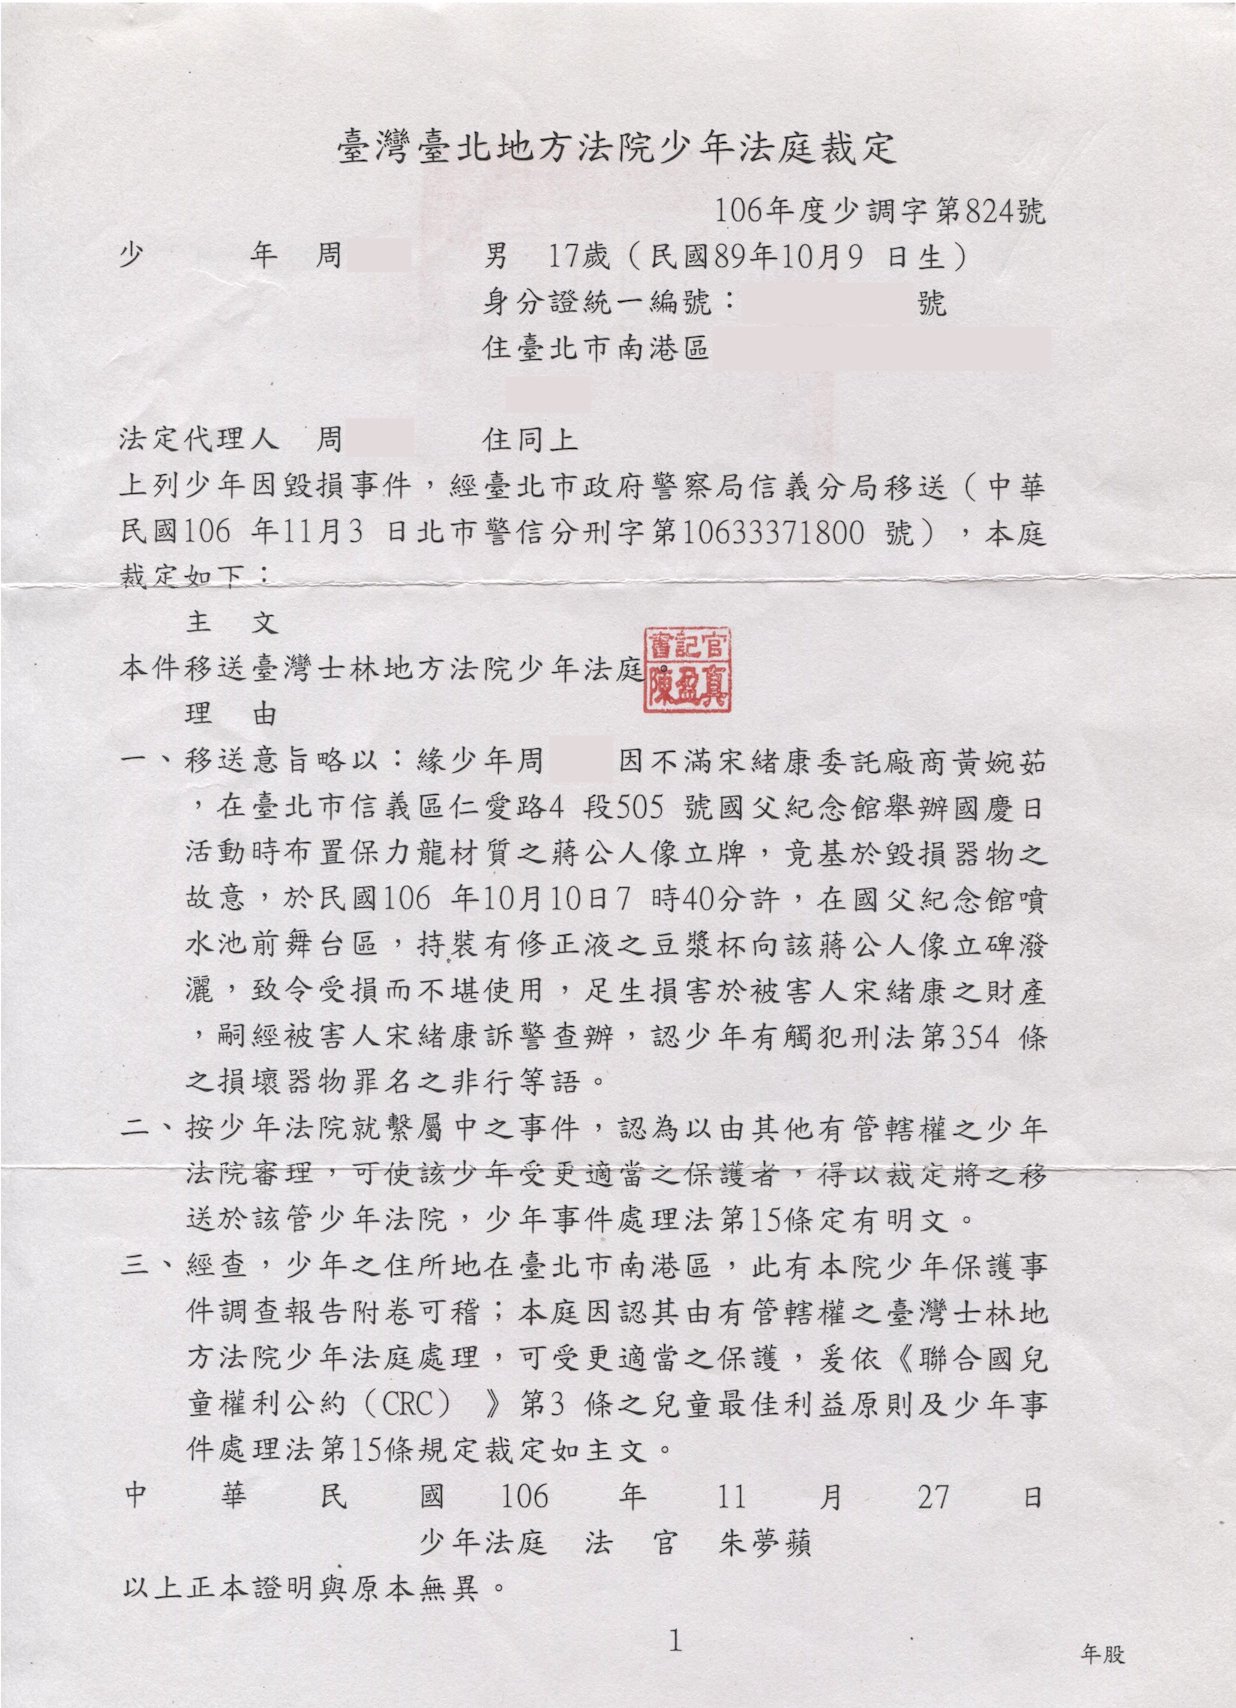 臺灣臺北地方法院少年法庭裁定
106年度少調字第824號
少年 周 男 17歲（民國89年10月9 日生）
身分證統一編號： 號
住臺北市南港區
法定代理人 周 住同上
上列少年因毀損事件，經臺北市政府警察局信義分局移送（中華
民國106 年11月3 日北市警信分刑字第10633371800 號），本庭
裁定如下：
主文
本件移送臺灣士林地方法院少年法庭。
書記官
陳盈真
理由
一、移送意旨略以：緣少年周 因不滿宋緒康委託廠商黃婉茹
，在臺北市信義區仁愛路4 段505 號國父紀念館舉辦國慶日
活動時布置保力龍材質之蔣公人像立牌，竟基於毀損器物之
故意，於民國106 年10月10日7 時40分許，在國父紀念館噴
水池前舞台區，持裝有修正液之豆漿杯向該蔣公人像立碑潑
灑，致令受損而不堪使用，足生損害於被害人宋緒康之財產
，嗣經被害人宋緒康訴警查辦，認少年有觸犯刑法第354 條
之損壞器物罪名之非行等語。
二、按少年法院就繫屬中之事件，認為以由其他有管轄權之少年
法院審理，可使該少年受更適當之保護者，得以裁定將之移
送於該管少年法院，少年事件處理法第15條定有明文。
三、經查，少年之住所地在臺北市南港區，此有本院少年保護事
件調查報告附卷可稽；本庭因認其由有管轄權之臺灣士林地
方法院少年法庭處理，可受更適當之保護，爰依《聯合國兒
童權利公約（CRC） 》第3 條之兒童最佳利益原則及少年事
件處理法第15條規定裁定如主文。
中華民國 106 年 11 月 27 日
少年法庭 法官 朱夢蘋
以上正本證明與原本無異。
1
年股